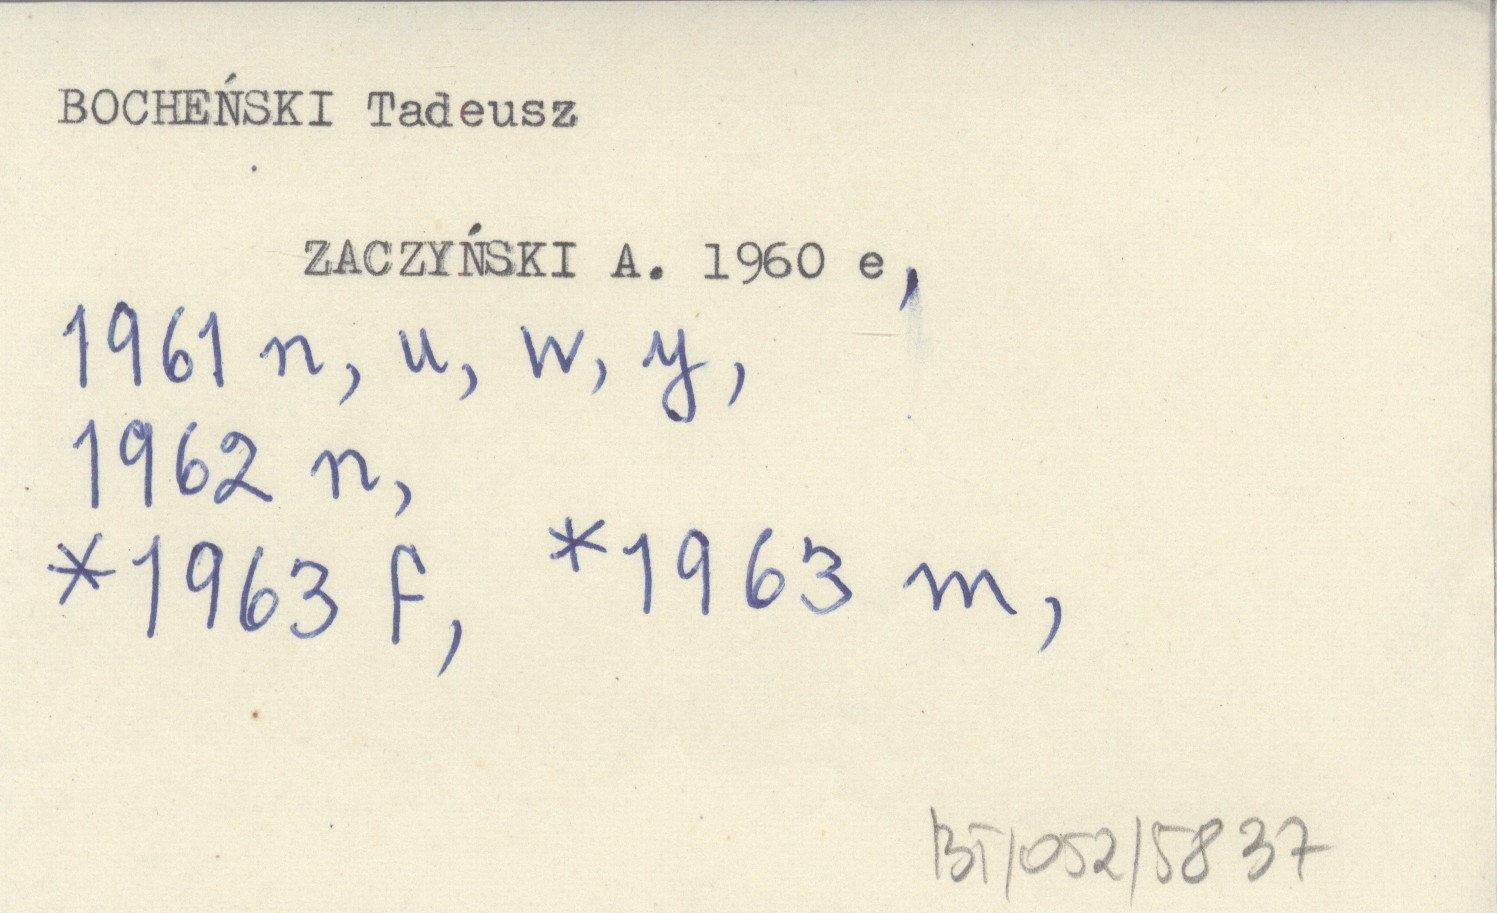 BOCHEŃSKI Tadeusz
ZACZYŃSKI A. 1960 e,
1961 n, u, w, y,
1962 n,
*1963 f, *1963 m,
BT/052/5837